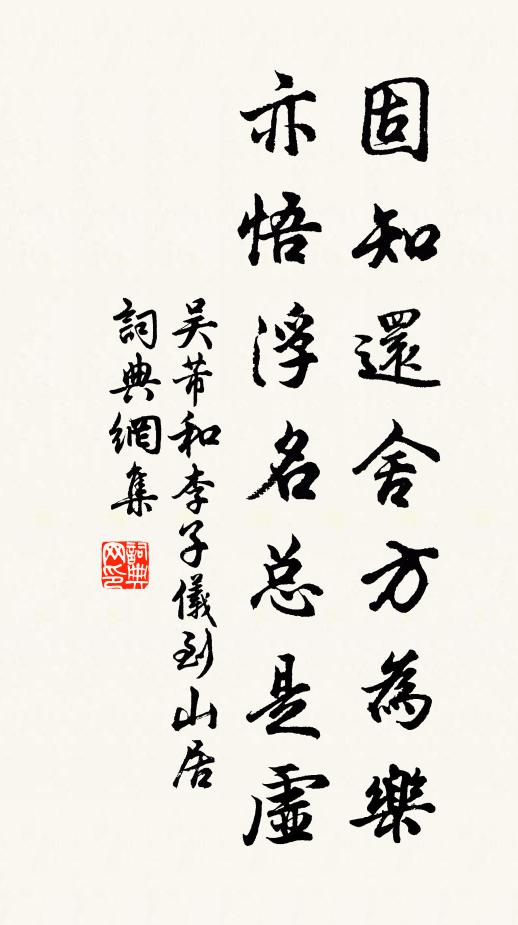 固知還舍方為樂
亦悟浮名总是虛
吴芾和李子儀到山居
詞典網集
詞典网印